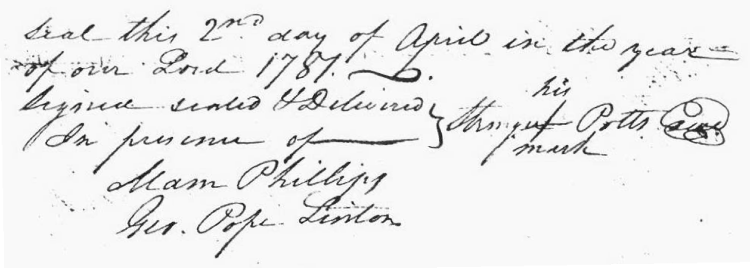 seal this 2nd day of April in the year
of our Lord 1787.
Signed sealed & Delivered
In presence of
his
Stringer Potts
mark
Mam Phillips
Geo. Pope Linton